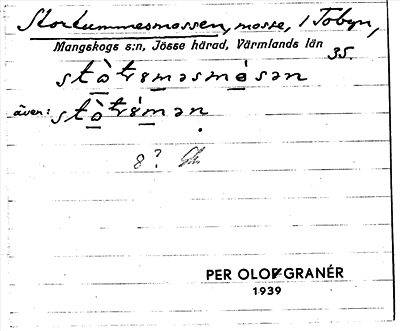 Stortummesmossen, mosse, i Tobyn,
Mangskogs s:n, Jösse härad, Värmlands län 35.
stòtrɞməsmósən
även: stòtrɞ́mən
8?
PER OLOF GRANÉR
1939